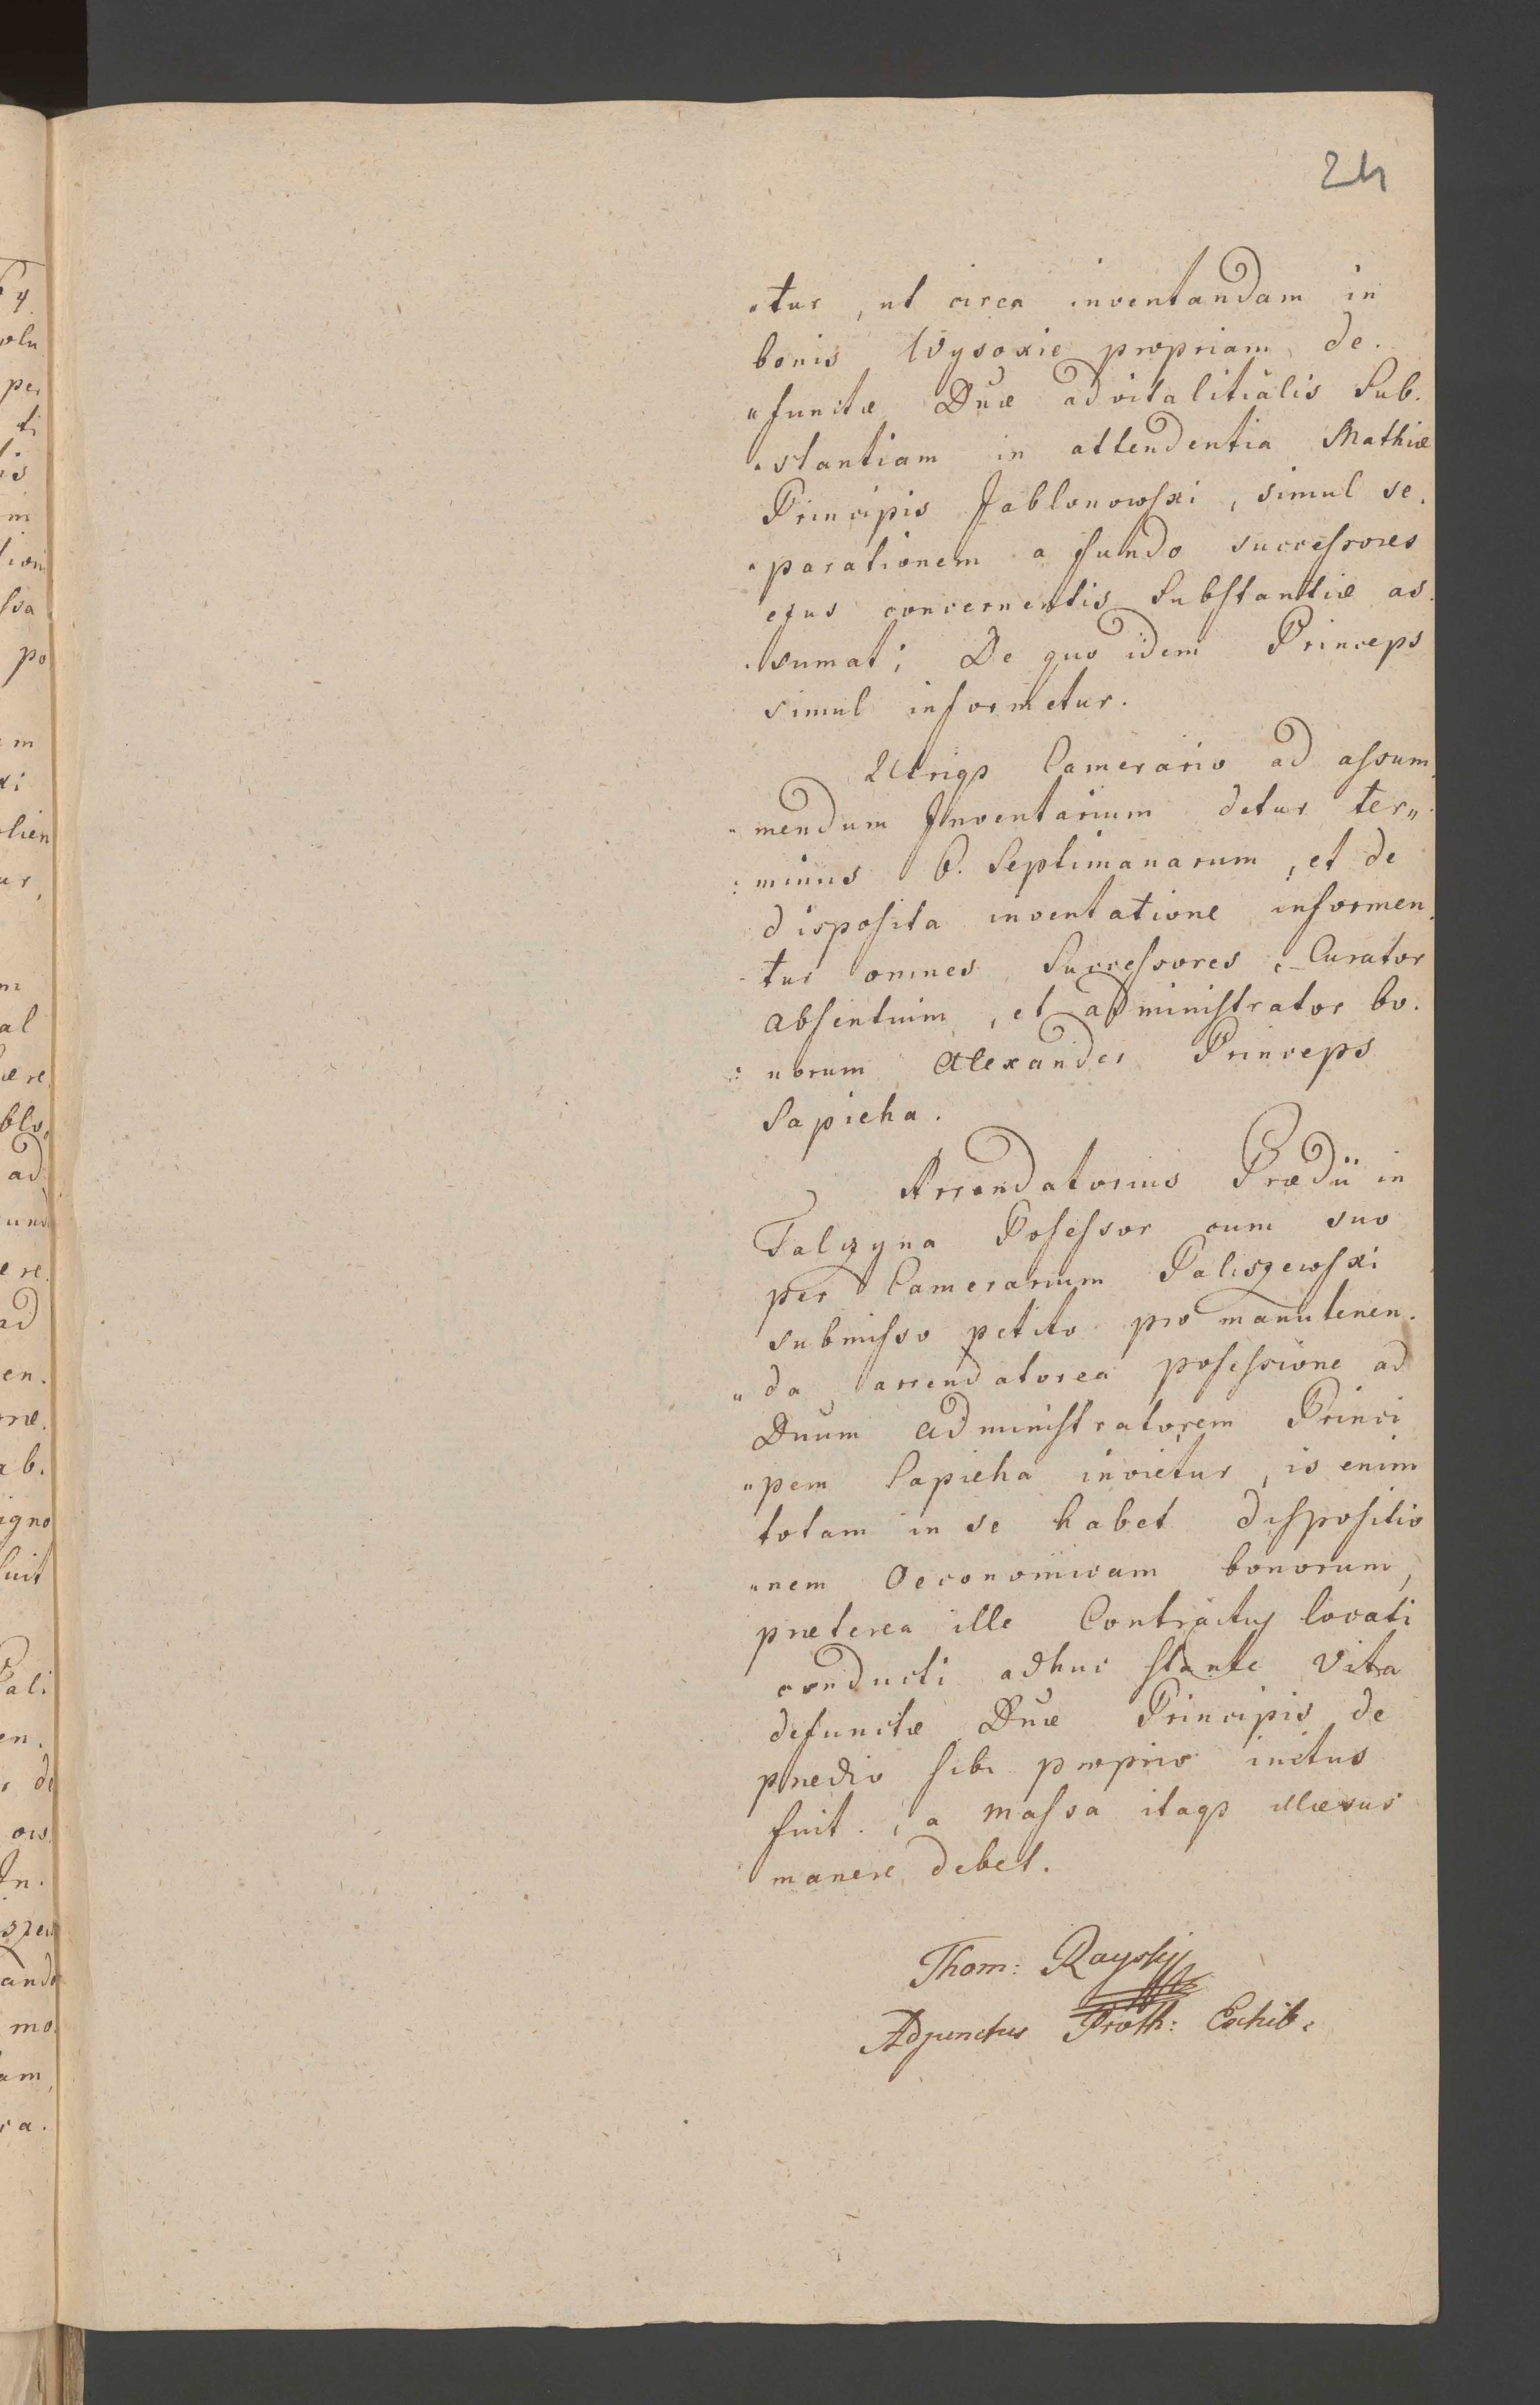 24
„tur, ut circa inventandam in
bonis Wysokie propriam de.
„functæ Dnæ advitalitialis Sub.
„stantiam in attendentia Mathiæ
Principis Jablonowski, simul se.
„parationem a fundo successores
ejus concernentis Substantiæ as.
„sumat; De quo idem Princeps
simul informetur.
Utriq3 Camerario ad assum„
„mendum Inventarium detur ter„
„minus 6. Septimanarum, et de
disposita inventatione informen„
„tur omnes Successores, Curator
absentium, et administrator bo.
„norum Alexander Princeps
Sapieha.
Arrendatorius Prædii in
Talczyna Posessor cum suo
per Camerarium Paliszewski
submisso petito pro manutenen.
„da arrendatorea posessione ad
Dnum Administratorem Princi
„pem Sapieha invietur, is enim
totam in se habet dispositio
„nem Oeconomicam bonorum,
præterea ille Contractus locati
conducti adhuc stante vita
defunctæ Dnæ Principis de
prædio sibi proprio initus
fuit, a massa itaq3 illæsus
manere debet.
Thom: Rayskj
Adjunctus Proth: Exhib.
ad
per
po
al
ali
mo.
am